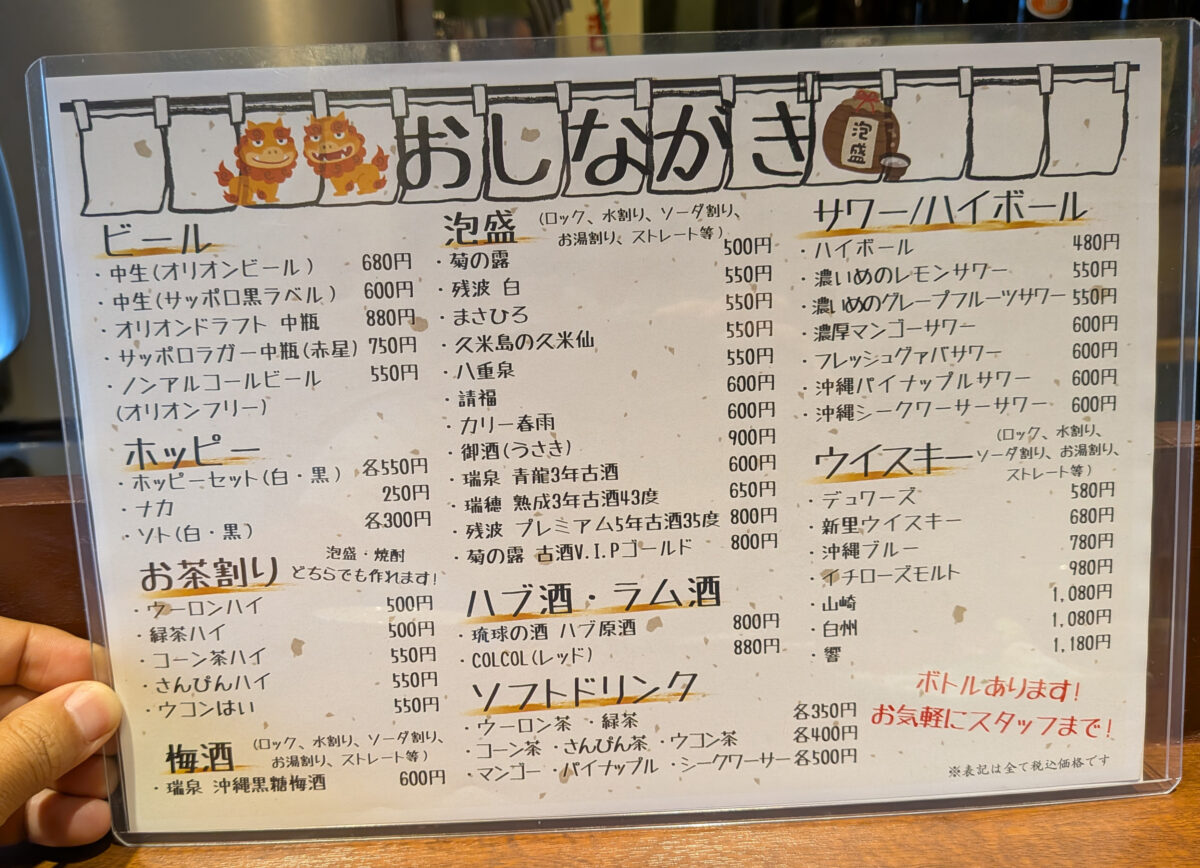 おしながき
泡盛
ビール
・中生(オリオンビール) 680円
・中生(サッポロ黒ラベル) 600円
・オリオンドラフト 中瓶 880円
・サッポロラガー中瓶(赤星) 750円
・ノンアルコールビール 550円
(オリオンフリー)
ホッピー
・ホッピーセット(白・黒) 各550円
・ナカ 250円
・ソト(白・黒) 各300円
お茶割り 泡盛・焼酎
どちらでも作れます!
・ウーロンハイ 500円
・緑茶ハイ 500円
・コーン茶ハイ 550円
・さんぴんハイ 550円
・ウコンはい 550円
梅酒 (ロック、水割り、ソーダ割り、
お湯割り、ストレート等)
・瑞泉 沖縄黒糖梅酒 600円
泡盛 (ロック、水割り、ソーダ割り、
お湯割り、ストレート等)
・菊の露 500円
・残波 白 550円
・まさひろ 550円
・久米島の久米仙 550円
・八重泉 550円
・請福 600円
・カリー春雨 600円
・御酒(うさき) 900円
・瑞泉 青龍3年古酒 600円
・瑞穂 熟成3年古酒43度 650円
・残波 プレミアム5年古酒35度 800円
・菊の露 古酒V.I.Pゴールド 800円
ハブ酒・ラム酒
・琉球の酒 ハブ原酒 800円
・COLCOL(レッド) 880円
ソフトドリンク
・ウーロン茶 ・緑茶 各350円
・コーン茶 ・さんぴん茶 ・ウコン茶 各400円
・マンゴー ・パイナップル ・シークワーサー 各500円
サワー/ハイボール
・ハイボール 480円
・濃いめのレモンサワー 550円
・濃いめのグレープフルーツサワー 550円
・濃厚マンゴーサワー 600円
・フレッシュグァバサワー 600円
・沖縄パイナップルサワー 600円
・沖縄シークワーサーサワー 600円
ウイスキー (ロック、水割り、
ソーダ割り、お湯割り、
ストレート等)
・デュワーズ 580円
・新里ウイスキー 680円
・沖縄ブルー 780円
・イチローズモルト 980円
・山崎 1,080円
・白州 1,080円
・響 1,180円
ボトルあります!
お気軽にスタッフまで!
※表記は全て税込価格です